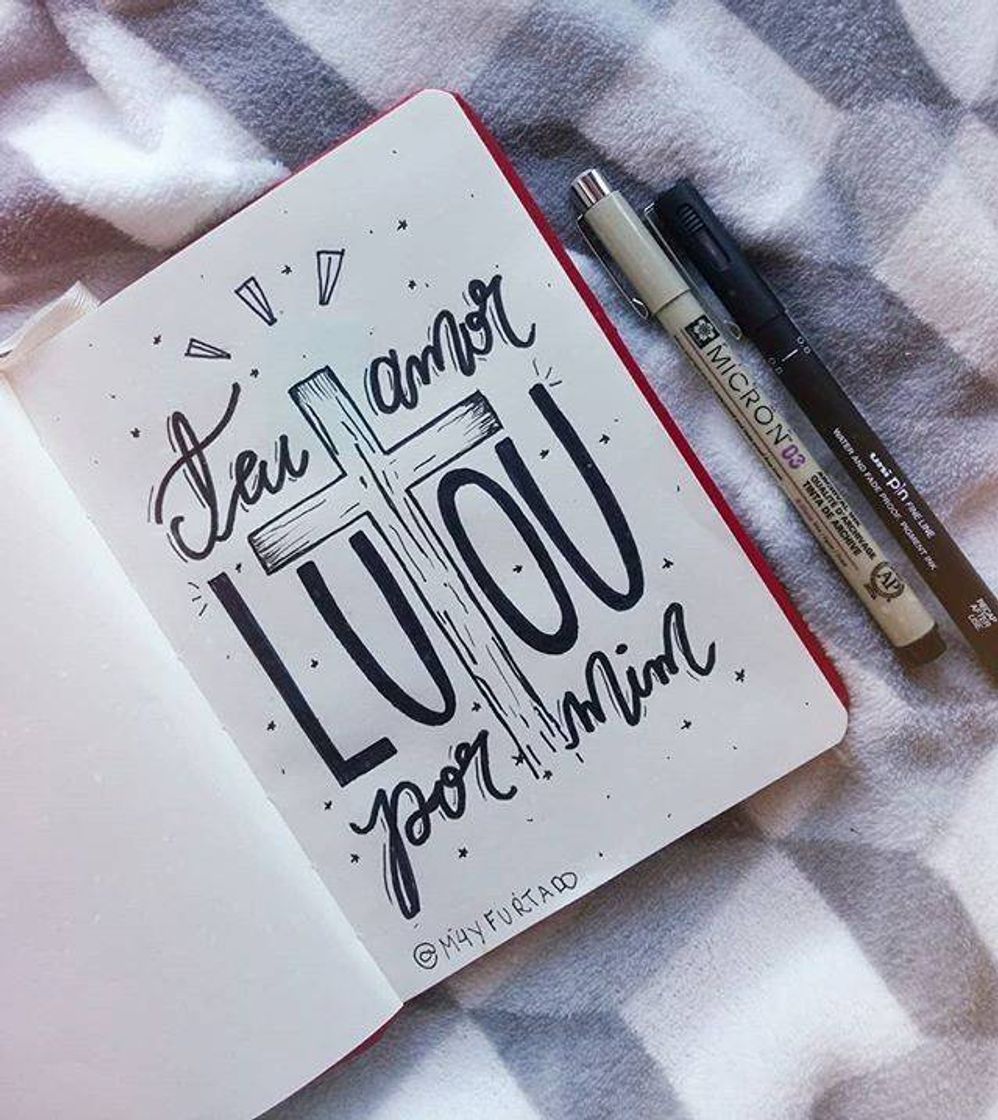 Teu amor
LUTOU
por mim
@M4YFURTADO
MICRON 03
ARCHIVAL INK
QUALITÉ D'ARCHIVAGE
TINTA DE ARCHIVE
AP
uni pin FINE LINE
WATER AND FADE PROOF PIGMENT INK
RECAP
AFTER
USE